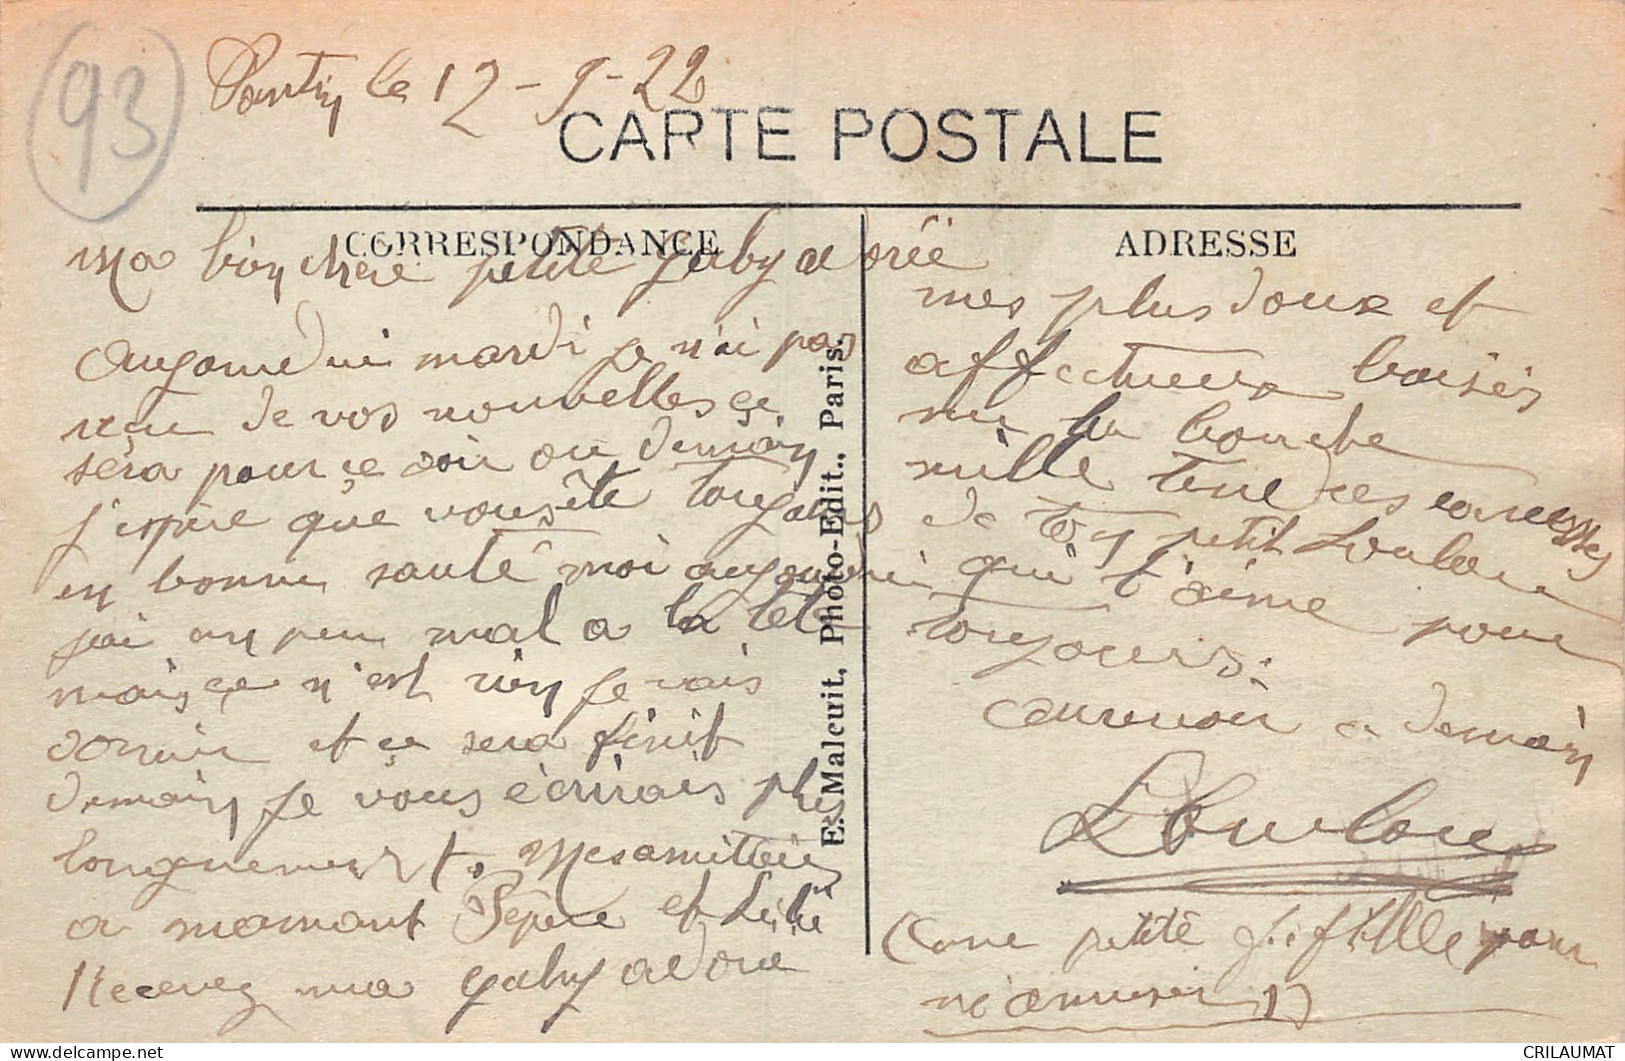 93
Pantin le 12-9-22
CARTE POSTALE
CORRESPONDANCE
ADRESSE
Ma bien chère petite Gaby adorée
aujourdui mardi je n'ai pas
reçu de vos nouvelles ce
sera pour ce soir ou demain
j'espère que vous ête toujours
en bonne santé moi aujourdui
jai un peu mal a la tête
mais ce n'est rien je vais
dormir et ce sera finit
demain je vous écrirais plus
longuement. Mes amittiés
a mamant Pépère et Lili
Recevez ma Gaby adoré
mes plus doux et
affectueux baisés
sur la bouche
mille tendres caresses
de ton petit Loulou
qui t'aime pour
toujours.
aurevoir a demain
Loulou
(une petite fille pour
m'amuser)
E. Malcuit, Photo-Edit., Paris.
CRILAUMAT